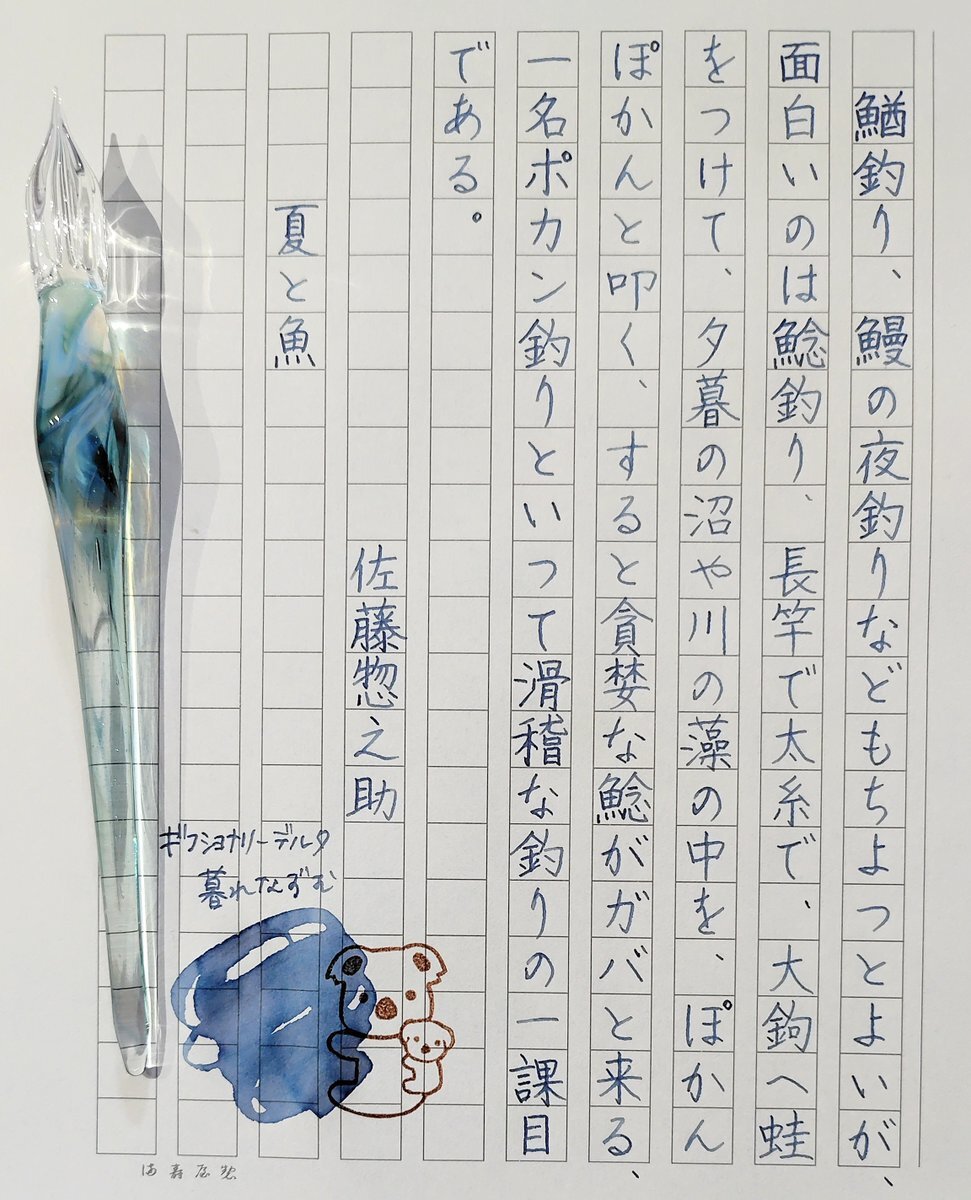 鰌釣り、鰻の夜釣りなどもちよつとよいが、
面白いのは鯰釣り、長竿で太糸で、大鉤へ蛙
をつけて、夕暮の沼や川の藻の中を、ぽかん
ぽかんと叩く、すると貪婪な鯰がガバと来る、
一名ポカン釣りといつて滑稽な釣りの一課目
である。
佐藤惣之助
夏と魚
ギフショナリーデルタ
暮れなずむ